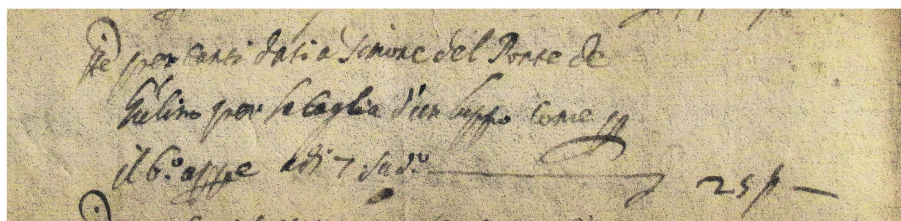 Ite per tanti dati a Simone del Ponte de
Gulino per la taglia d'un luppo come pp
il 6.º appe adi 7 sud.º 25 p —